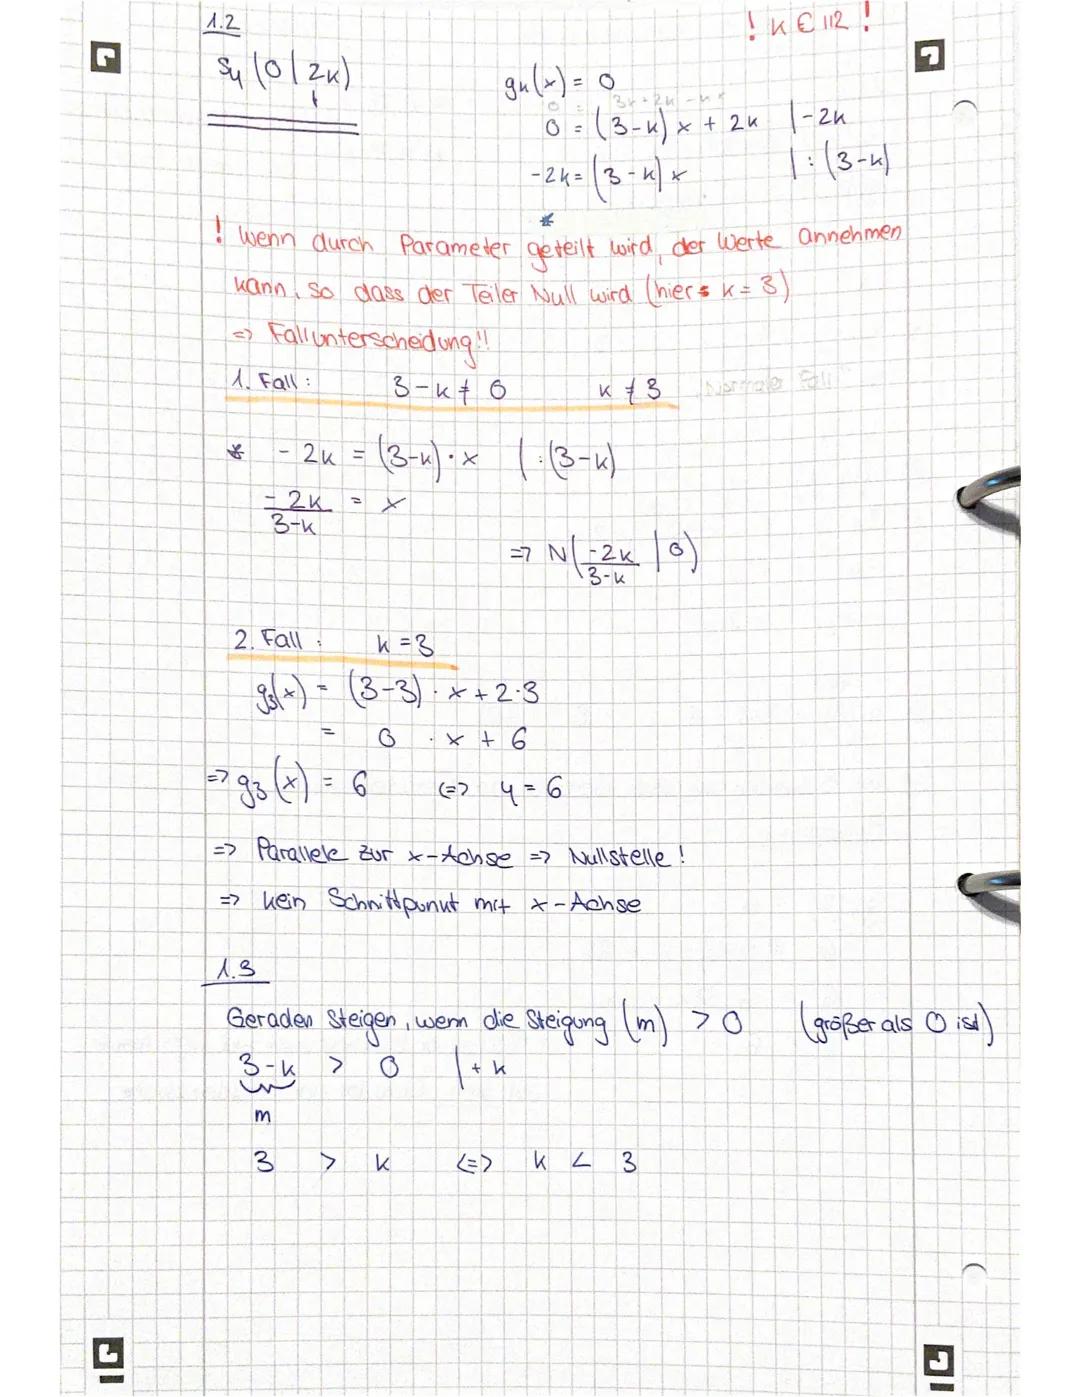 1.2
! k ∈ ℝ !
Sy (0 | 2k)
gk(x) = 0
0 = 3x + 2k - kx
0 = (3-k) x + 2k | -2k
-2k = (3-k) x | : (3-k)
*
! Wenn durch Parameter geteilt wird, der Werte annehmen
kann, so dass der Teiler Null wird (hier: k = 3)
=> Fallunterscheidung!!
1. Fall: 3-k ≠ 0 k ≠ 3 "Normaler Fall"
* - 2k = (3-k) · x | : (3-k)
-2k/3-k = x
=> N(-2k/3-k | 0)
2. Fall: k = 3
g3(x) = (3-3) · x + 2·3
= 0 · x + 6
=> g3(x) = 6 <=> y = 6
=> Parallele zur x-Achse => Nullstelle!
=> kein Schnittpunkt mit x-Achse
1.3
Geraden steigen, wenn die Steigung (m) > 0 (größer als 0 ist)
3-k > 0 | + k
m
3 > k <=> k < 3